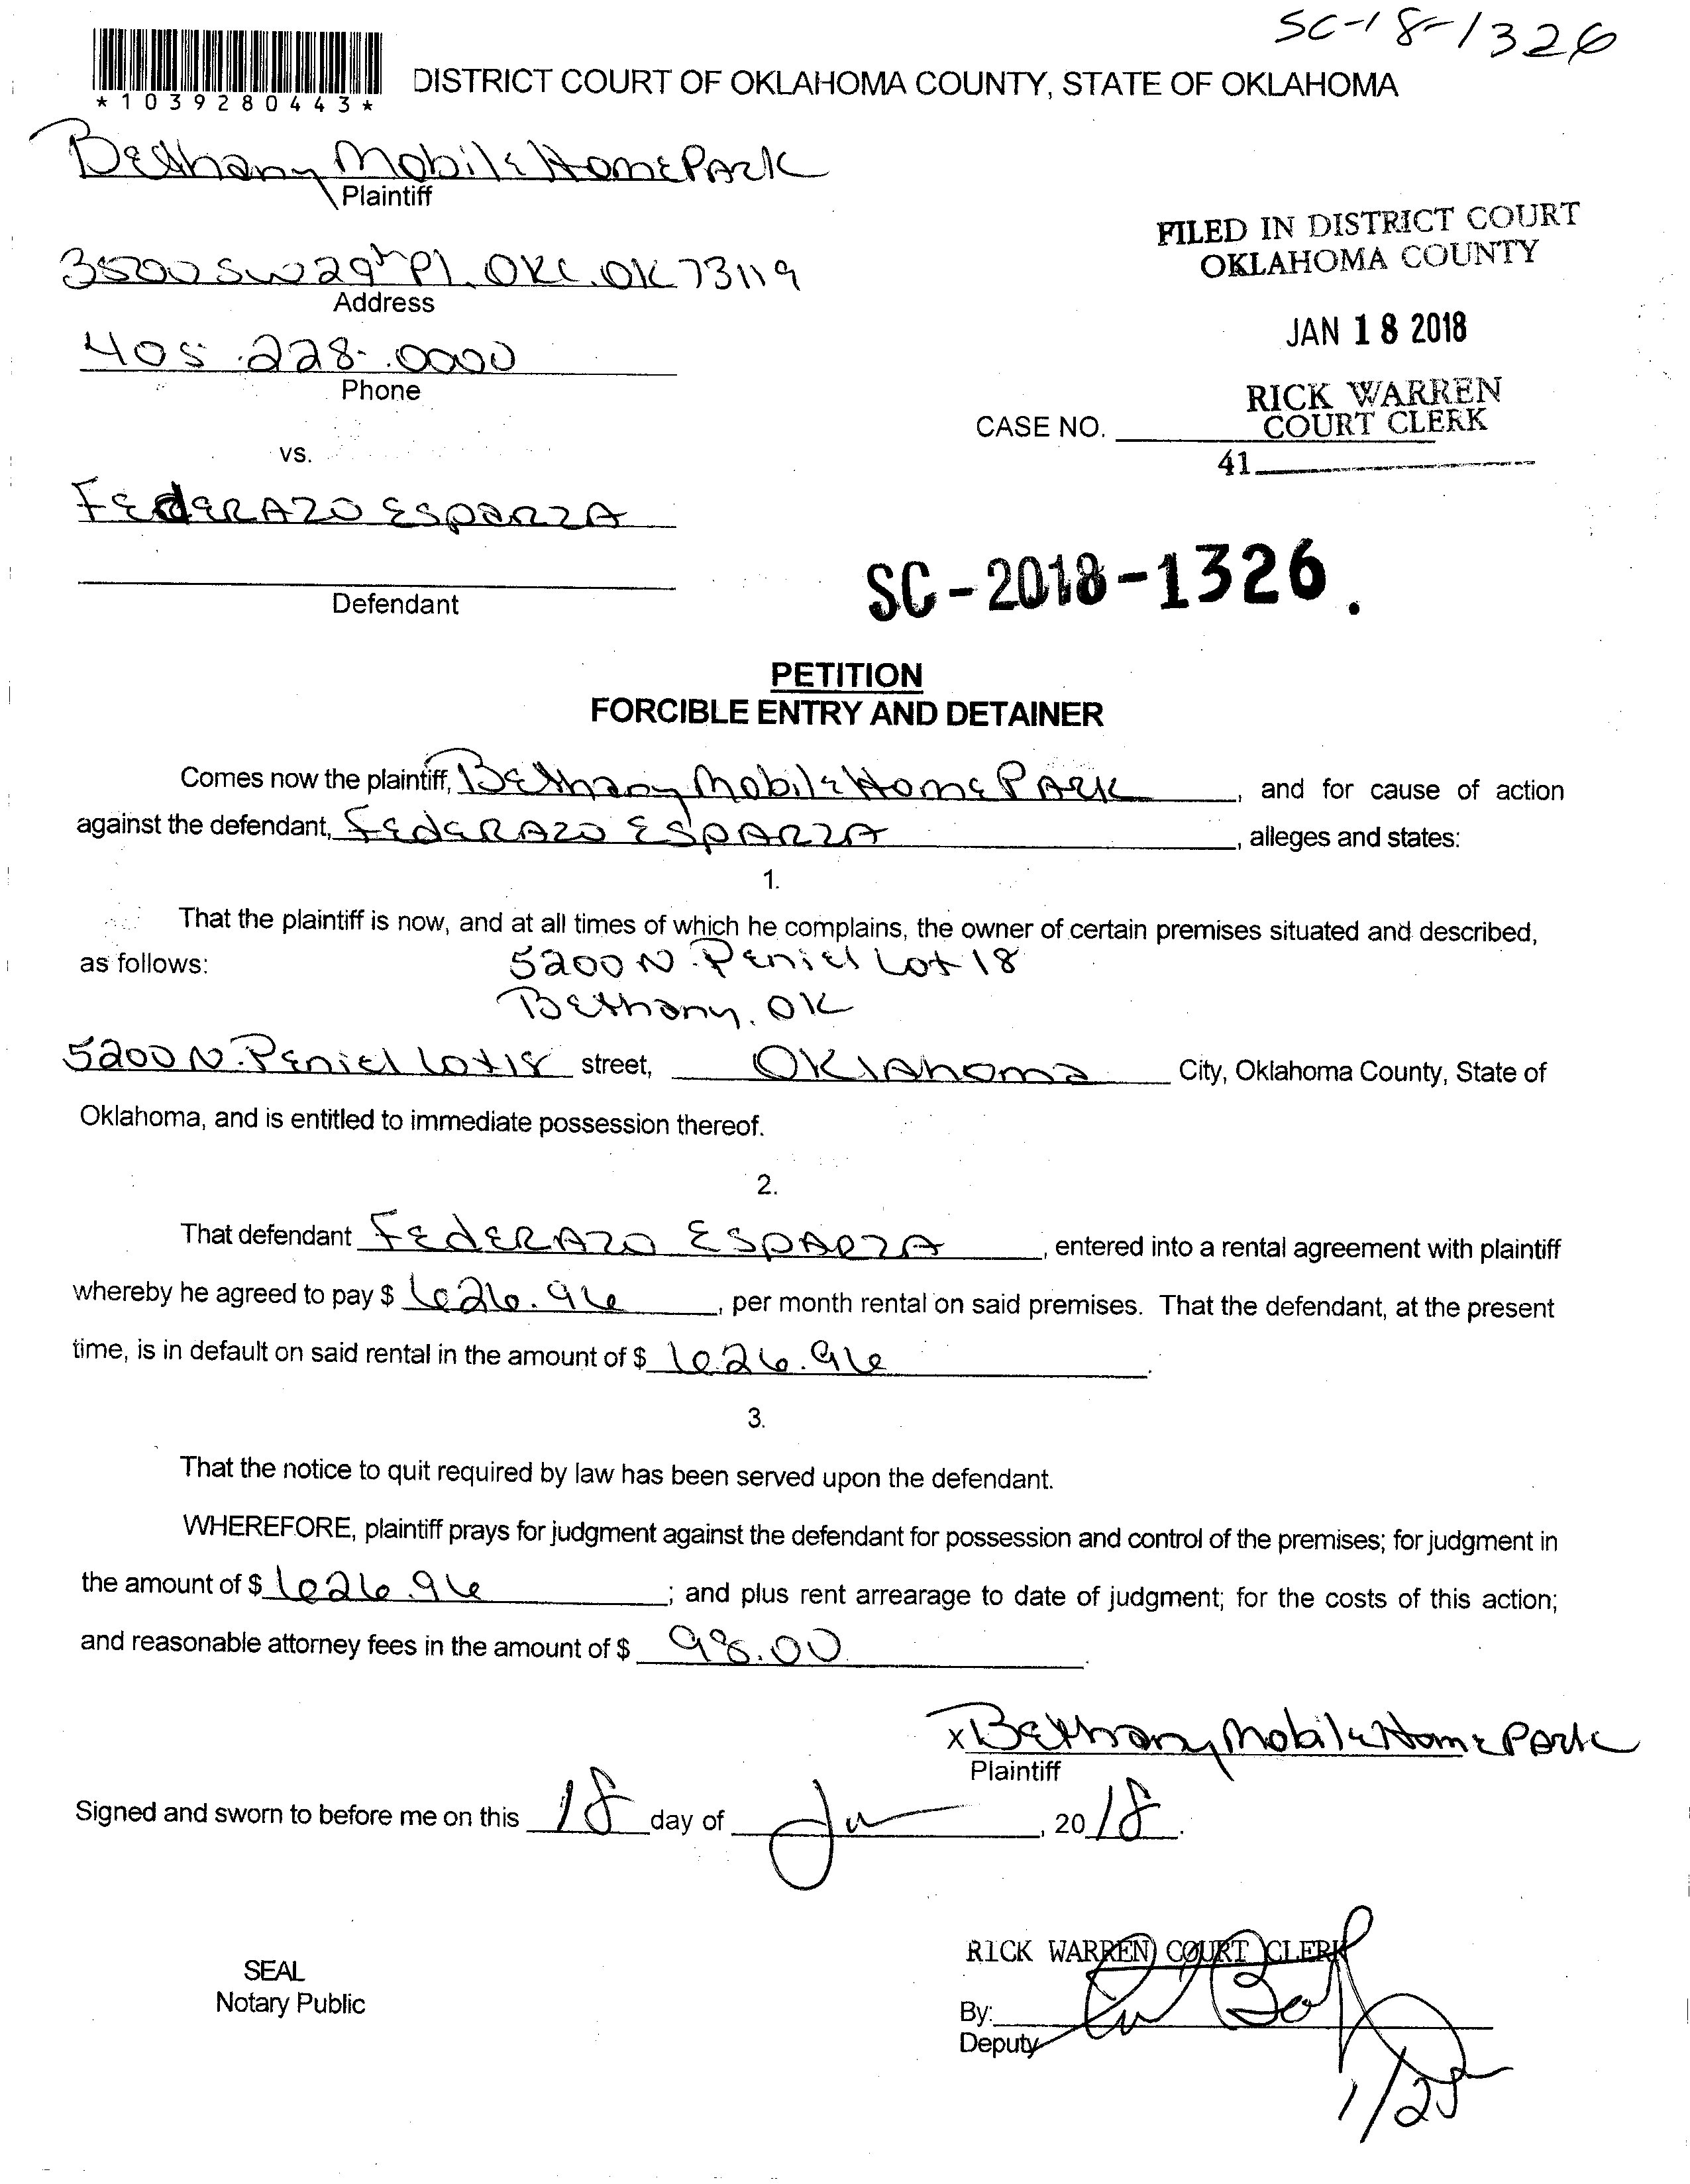 SC-18-1326
*1039280443*
DISTRICT COURT OF OKLAHOMA COUNTY, STATE OF OKLAHOMA
Bethany Mobile Home Park
Plaintiff
3500 SW 29th Pl. OKC. OK 73119
Address
405.228.0000
Phone
vs.
FILED IN DISTRICT COURT
OKLAHOMA COUNTY
JAN 18 2018
RICK WARREN
COURT CLERK
CASE NO.
41
FEdERAZO ESPARZA
Defendant
SC-2018-1326.
PETITION
FORCIBLE ENTRY AND DETAINER
Comes now the plaintiff, Bethany Mobile Home Park, and for cause of action
against the defendant, FEdERAZO ESPARZA, alleges and states:
1.
That the plaintiff is now, and at all times of which he complains, the owner of certain premises situated and described,
as follows: 5200 N. Peniel Lot 18
Bethany, OK
5200 N. Peniel Lot 18 street, Oklahoma City, Oklahoma County, State of
Oklahoma, and is entitled to immediate possession thereof.
2.
That defendant FEdERAZO ESPARZA, entered into a rental agreement with plaintiff
whereby he agreed to pay $ 626.96, per month rental on said premises. That the defendant, at the present
time, is in default on said rental in the amount of $ 626.96.
3.
That the notice to quit required by law has been served upon the defendant.
WHEREFORE, plaintiff prays for judgment against the defendant for possession and control of the premises; for judgment in
the amount of $ 626.96; and plus rent arrearage to date of judgment; for the costs of this action;
and reasonable attorney fees in the amount of $ 98.00.
x Bethany Mobile Home Park
Plaintiff
Signed and sworn to before me on this 18 day of Jan, 2018.
SEAL
Notary Public
RICK WARREN COURT CLERK
By:
Deputy